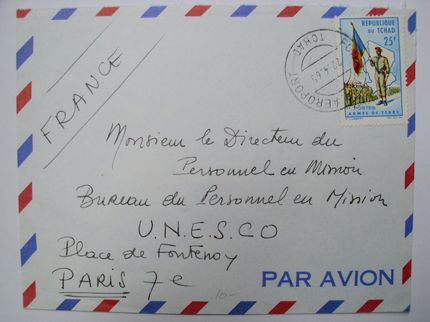 REPUBLIQUE
DU TCHAD
25f
POSTES
ARMEE DE TERRE
AEROPORT
TCHAD
FRANCE
Monsieur le Directeur du
Personnel en Mission
Bureau du Personnel en Mission
U.N.E.S.CO
Place de Fontenoy
PARIS 7e
PAR AVION
10-